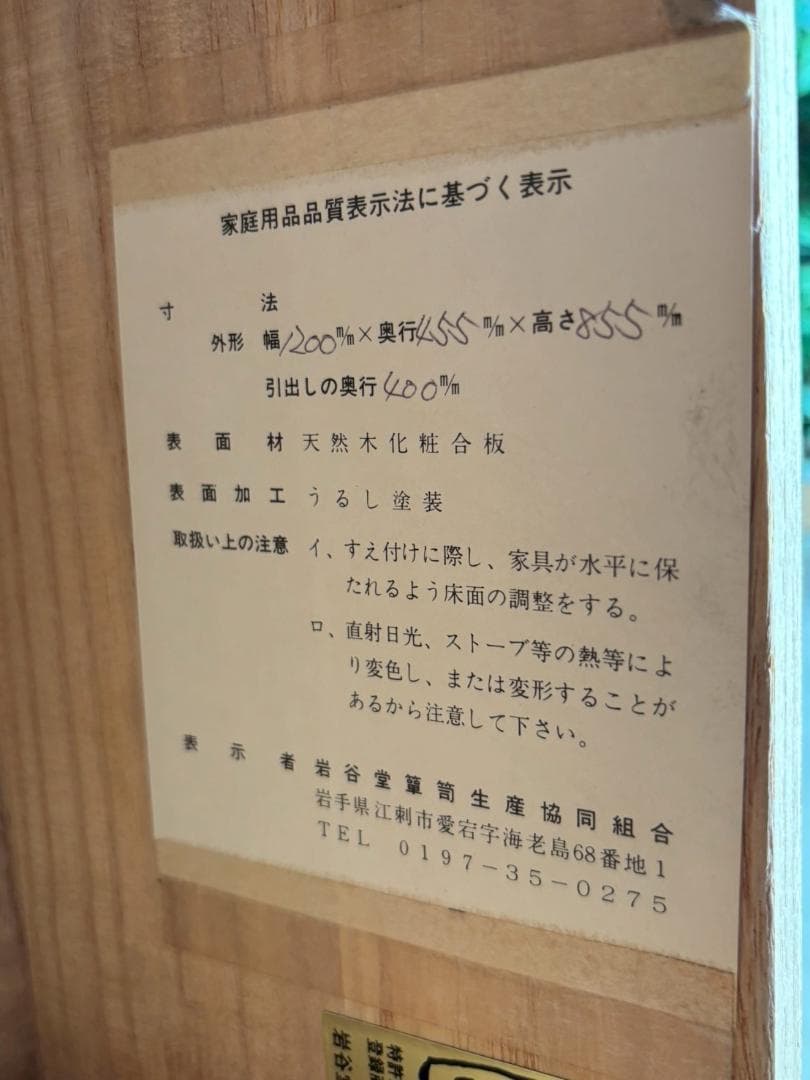 家庭用品品質表示法に基づく表示
寸法
外形 幅1200m/m×奥行455m/m×高さ855m/m
引出しの奥行400m/m
表面材 天然木化粧合板
表面加工 うるし塗装
取扱い上の注意 イ、すえ付けに際し、家具が水平に保
たれるよう床面の調整をする。
ロ、直射日光、ストーブ等の熱等によ
り変色し、または変形することが
あるから注意して下さい。
表示者 岩谷堂簞笥生産協同組合
岩手県江刺市愛宕字海老島68番地1
TEL 0197-35-0275
特許
登録
岩谷